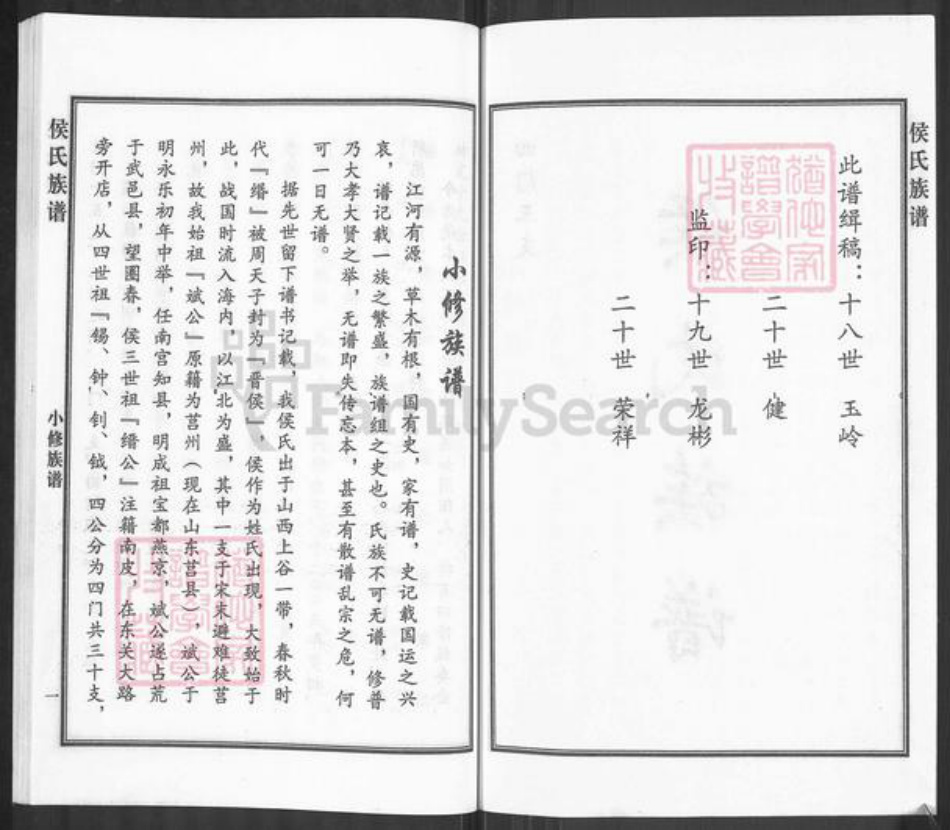 侯氏族谱
此谱缉稿：十八世 玉岭
二十世 健
监印：十九世 龙彬
二十世 荣祥
小修族谱
江河有源，草木有根，国有史，家有谱，史记载国运之兴
衰，谱记载一族之繁盛，族谱组之史也。氏族不可无谱，修普
乃大孝大贤之举，无谱即失传忘本，甚至有散谱乱宗之危，何
可一日无谱。
据先世留下谱书记载，我侯氏出于山西上谷一带，春秋时
代『缙』被周天子封为『晋侯』，侯作为姓氏出现，大致始于
此，战国时流入海内，以江北为盛，其中一支于宋末避难徒莒
州，故我始祖『斌公』原籍为莒州（现在山东莒县），斌公于
明永乐初年中举，任南宫知县，明成祖宝都燕京，斌公遂占荒
于武邑县，望圈春，侯三世祖『缙公』注籍南皮，在东关大路
旁开店，从四世祖『锡、钟、钊、钺，四公分为四门共三十支，
侯氏族谱
小修族谱
一
FamilySearch